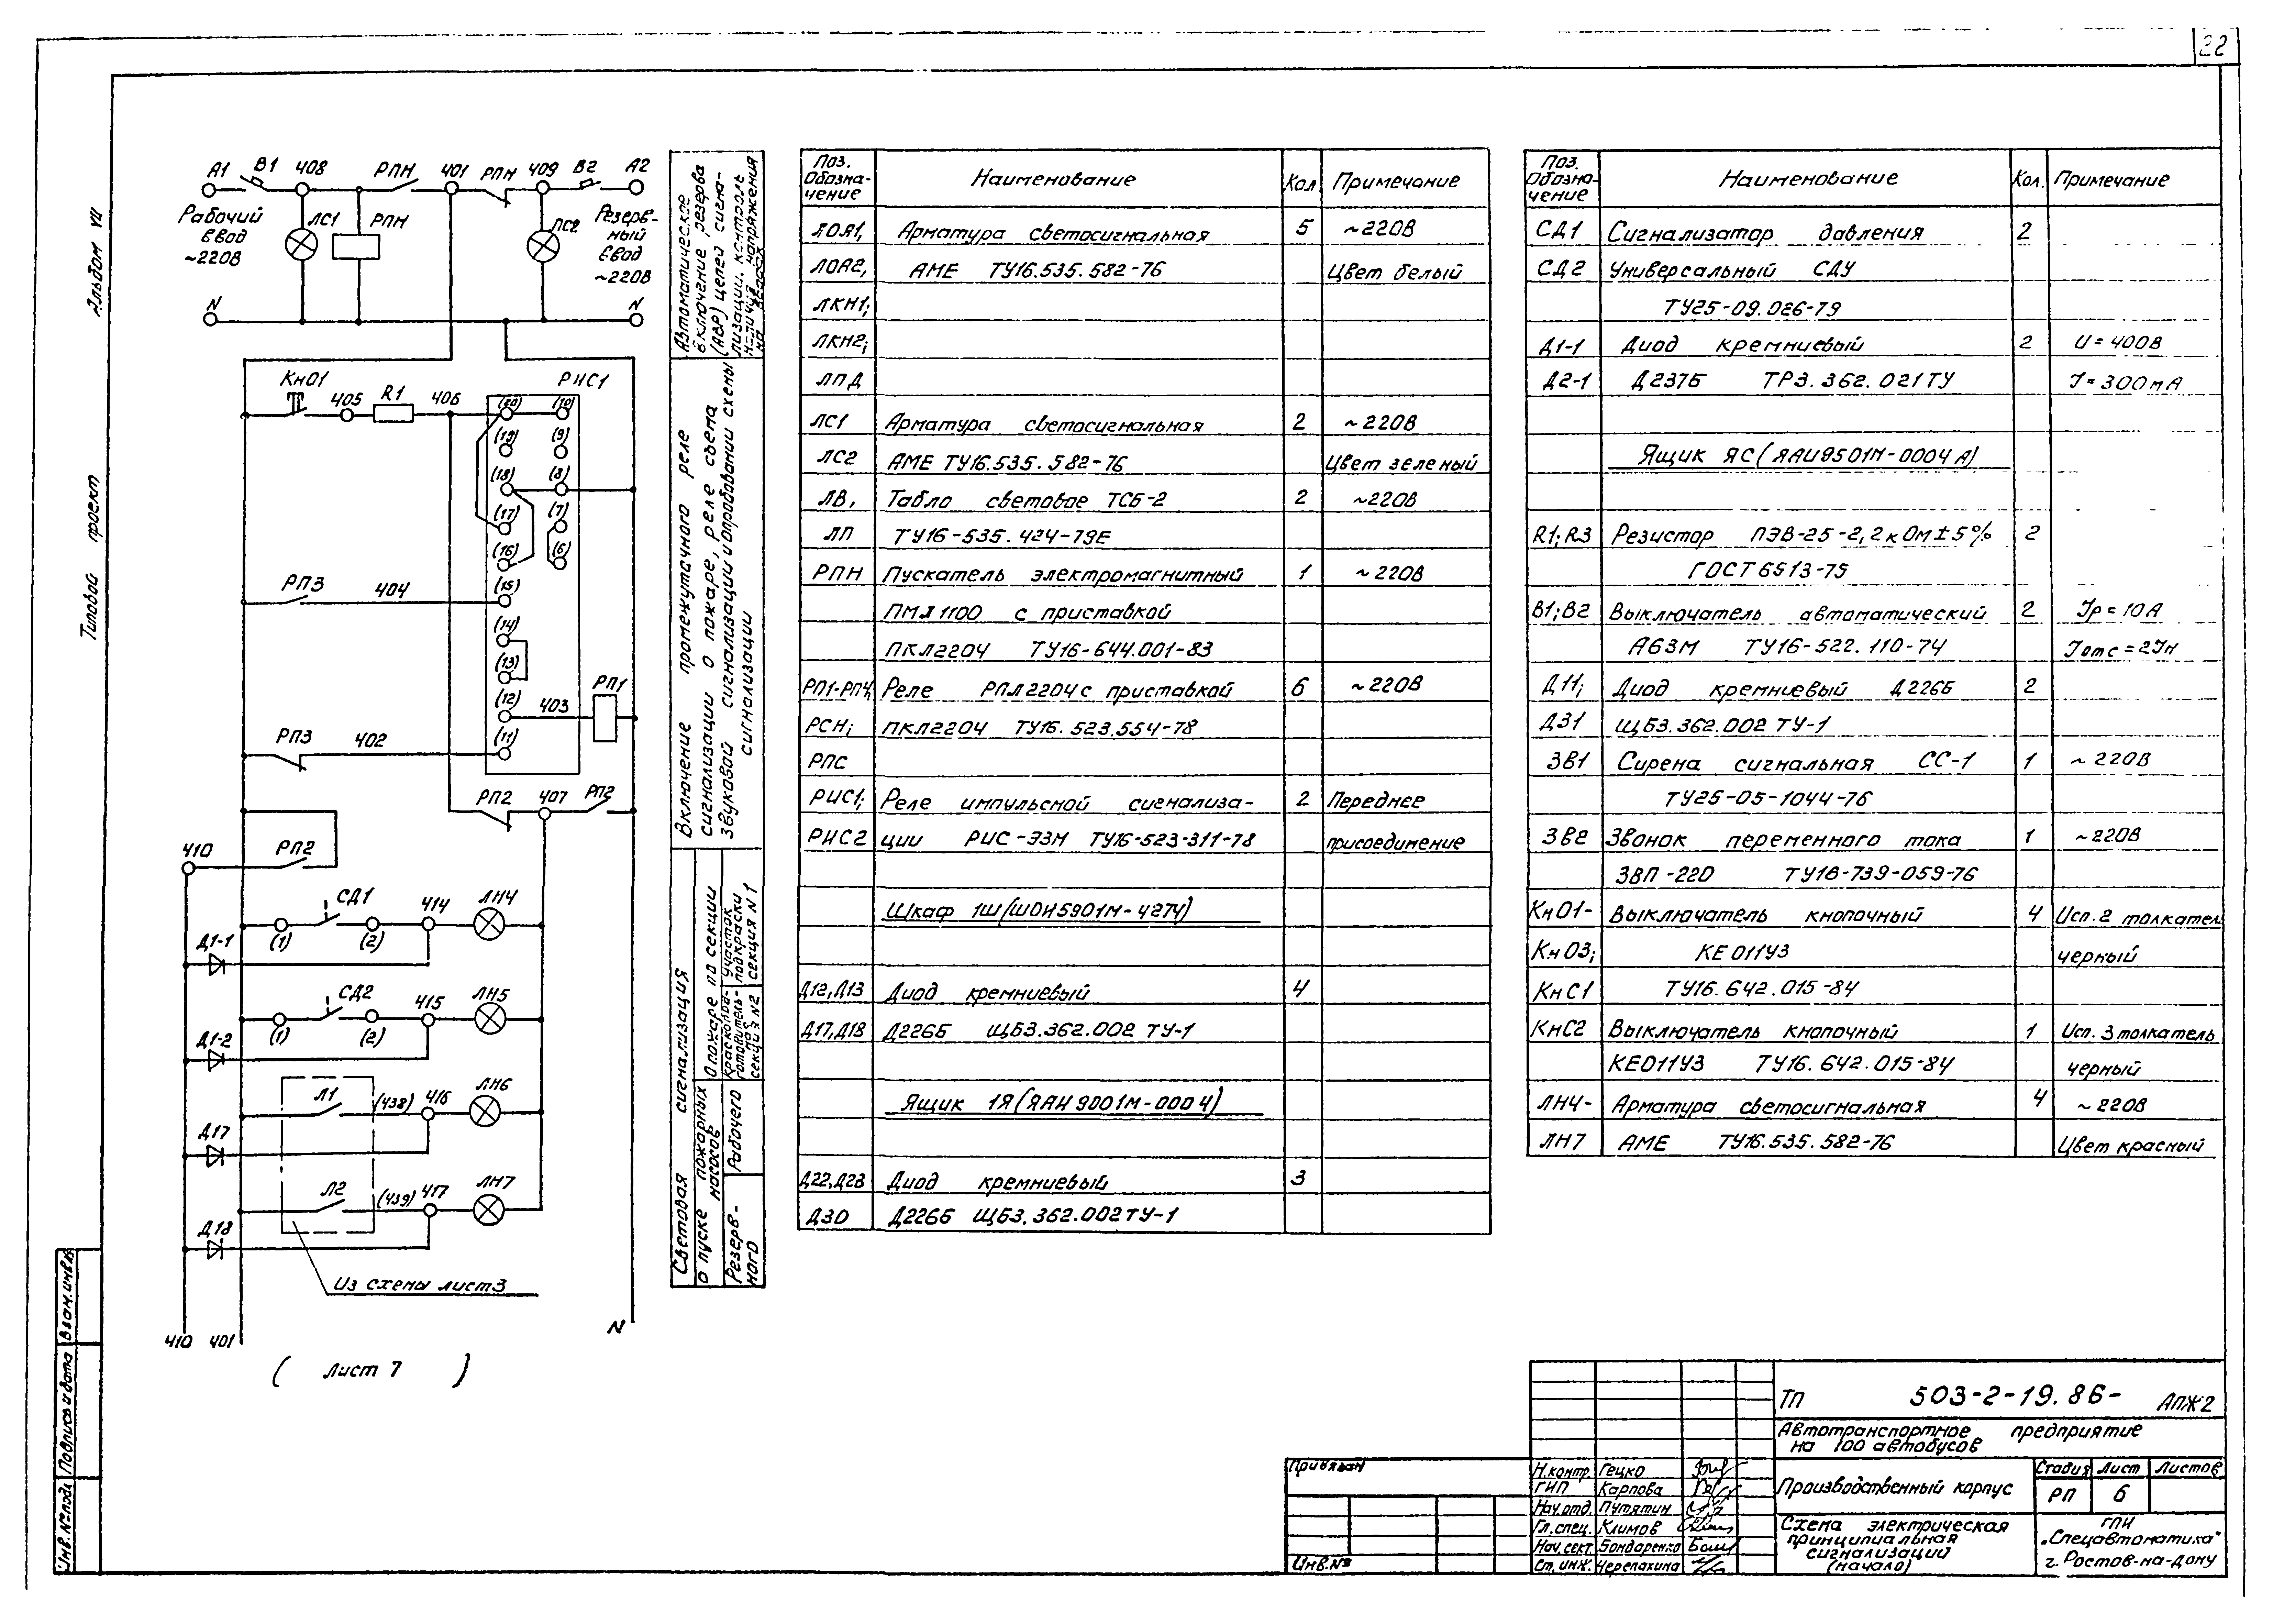 22
Альбом VII
Типовой проект
А1 В1 408 РПН 401 РПН 409 В2 А2
Рабочий ввод ~220В
ЛС1 РПН ЛС2
Резервный ввод ~220В
N N
КнО1 405 R1 406 РИС1
(20) (10)
(19) (9)
(18) (8)
(17) (7)
(16) (6)
РП3 404 (15)
(14)
(13)
(12) 403 РП1
РП3 402 (11)
РП2 407 РП2
410 РП2
СД1 414 ЛН4
(1) (2)
Д1-1
СД2 415 ЛН5
(1) (2)
Д1-2
Л1 (438) 416 ЛН6
Д17
Л2 (439) 417 ЛН7
Д18
Из схемы лист3
410 401 N
( Лист 7 )
Автоматическое
включение резерва
(АВР) цепей сигна-
лизации, контроль
наличия напряжения
на вводах
Включение промежуточного реле
сигнализации о пожаре, реле съема
звуковой сигнализации и опробовании схемы
сигнализации
Световая сигнализация
О пожаре по секции
Участок подкраски секция N1
Краскопри-готовительная секция N2
О пуске пожарных насосов
Рабочего
Резерв-
ного
Поз. Обозна-чение Наименование Кол. Примечание
ЛОА1, Арматура светосигнальная 5 ~220В
ЛОА2, АМЕ ТУ16.535.582-76 Цвет белый
ЛКН1;
ЛКН2;
ЛПД
ЛС1 Арматура светосигнальная 2 ~220В
ЛС2 АМЕ ТУ16.535.582-76 Цвет зеленый
ЛВ, Табло световое ТСБ-2 2 ~220В
ЛП ТУ16-535.424-79Е
РПН Пускатель электромагнитный 1 ~220В
ПМЛ1100 с приставкой
ПКЛ2204 ТУ16-644.001-83
РП1-РП4, Реле РПЛ2204 с приставкой 6 ~220В
РСН; ПКЛ2204 ТУ16.523.554-78
РПС
РИС1; Реле импульсной сигнализа- 2 Переднее
РИС2 ции РИС-Э3М ТУ16-523-311-78 присоединение
Шкаф 1Ш(ШОИ5901М-4274)
Д12,Д13 Диод кремниевый 4
Д17,Д18 Д226Б ЩБ3.362.002 ТУ-1
Ящик 1Я(ЯАИ9001М-0004)
Д22,Д23 Диод кремниевый 3
Д30 Д226Б ЩБ3.362.002ТУ-1
Поз. Обозна-чение Наименование Кол. Примечание
СД1 Сигнализатор давления 2
СД2 Универсальный СДУ
ТУ25-09.026-79
Д1-1 Диод кремниевый 2 U=400В
Д2-1 Д237Б ТР3.362.021ТУ I=300мА
Ящик ЯС(ЯАИ9501М-0004А)
R1;R3 Резистор ПЭВ-25-2,2кОм±5% 2
ГОСТ6513-75
В1;В2 Выключатель автоматический 2 Iр=10А
А63М ТУ16-522.110-74 Iотс=2Iн
Д11; Диод кремниевый Д226Б 2
Д31 ЩБ3.362.002 ТУ-1
ЗВ1 Сирена сигнальная СС-1 1 ~220В
ТУ25-05-1044-76
ЗВ2 Звонок переменного тока 1 ~220В
ЗВП-220 ТУ16-739-059-76
КнО1- Выключатель кнопочный 4 Исп.2 толкател
КнО3; КЕ011У3 черный
КнС1 ТУ16.642.015-84
КнС2 Выключатель кнопочный 1 Исп.3 толкатель
КЕ011У3 ТУ16.642.015-84 черный
ЛН4- Арматура светосигнальная 4 ~220В
ЛН7 АМЕ ТУ16.535.582-76 Цвет красный
ТП 503-2-19.86- АПЖ2
Автотранспортное предприятие
на 100 автобусов
Производственный корпус
Стадия Лист Листов
РП 6
Схема электрическая
принципиальная
сигнализации
(начало)
ГПИ
„Спецавтоматика"
г. Ростов-на-дону
Н.контр. Гецко
ГИП Карпова
Нач.отд. Путятин
Гл.спец. Климов
Нач.сект. Бондаренко
Ст.инж. Черепахина
Привязан
Инв.№
Инв.№подл Подпись и дата Взам.инв.№